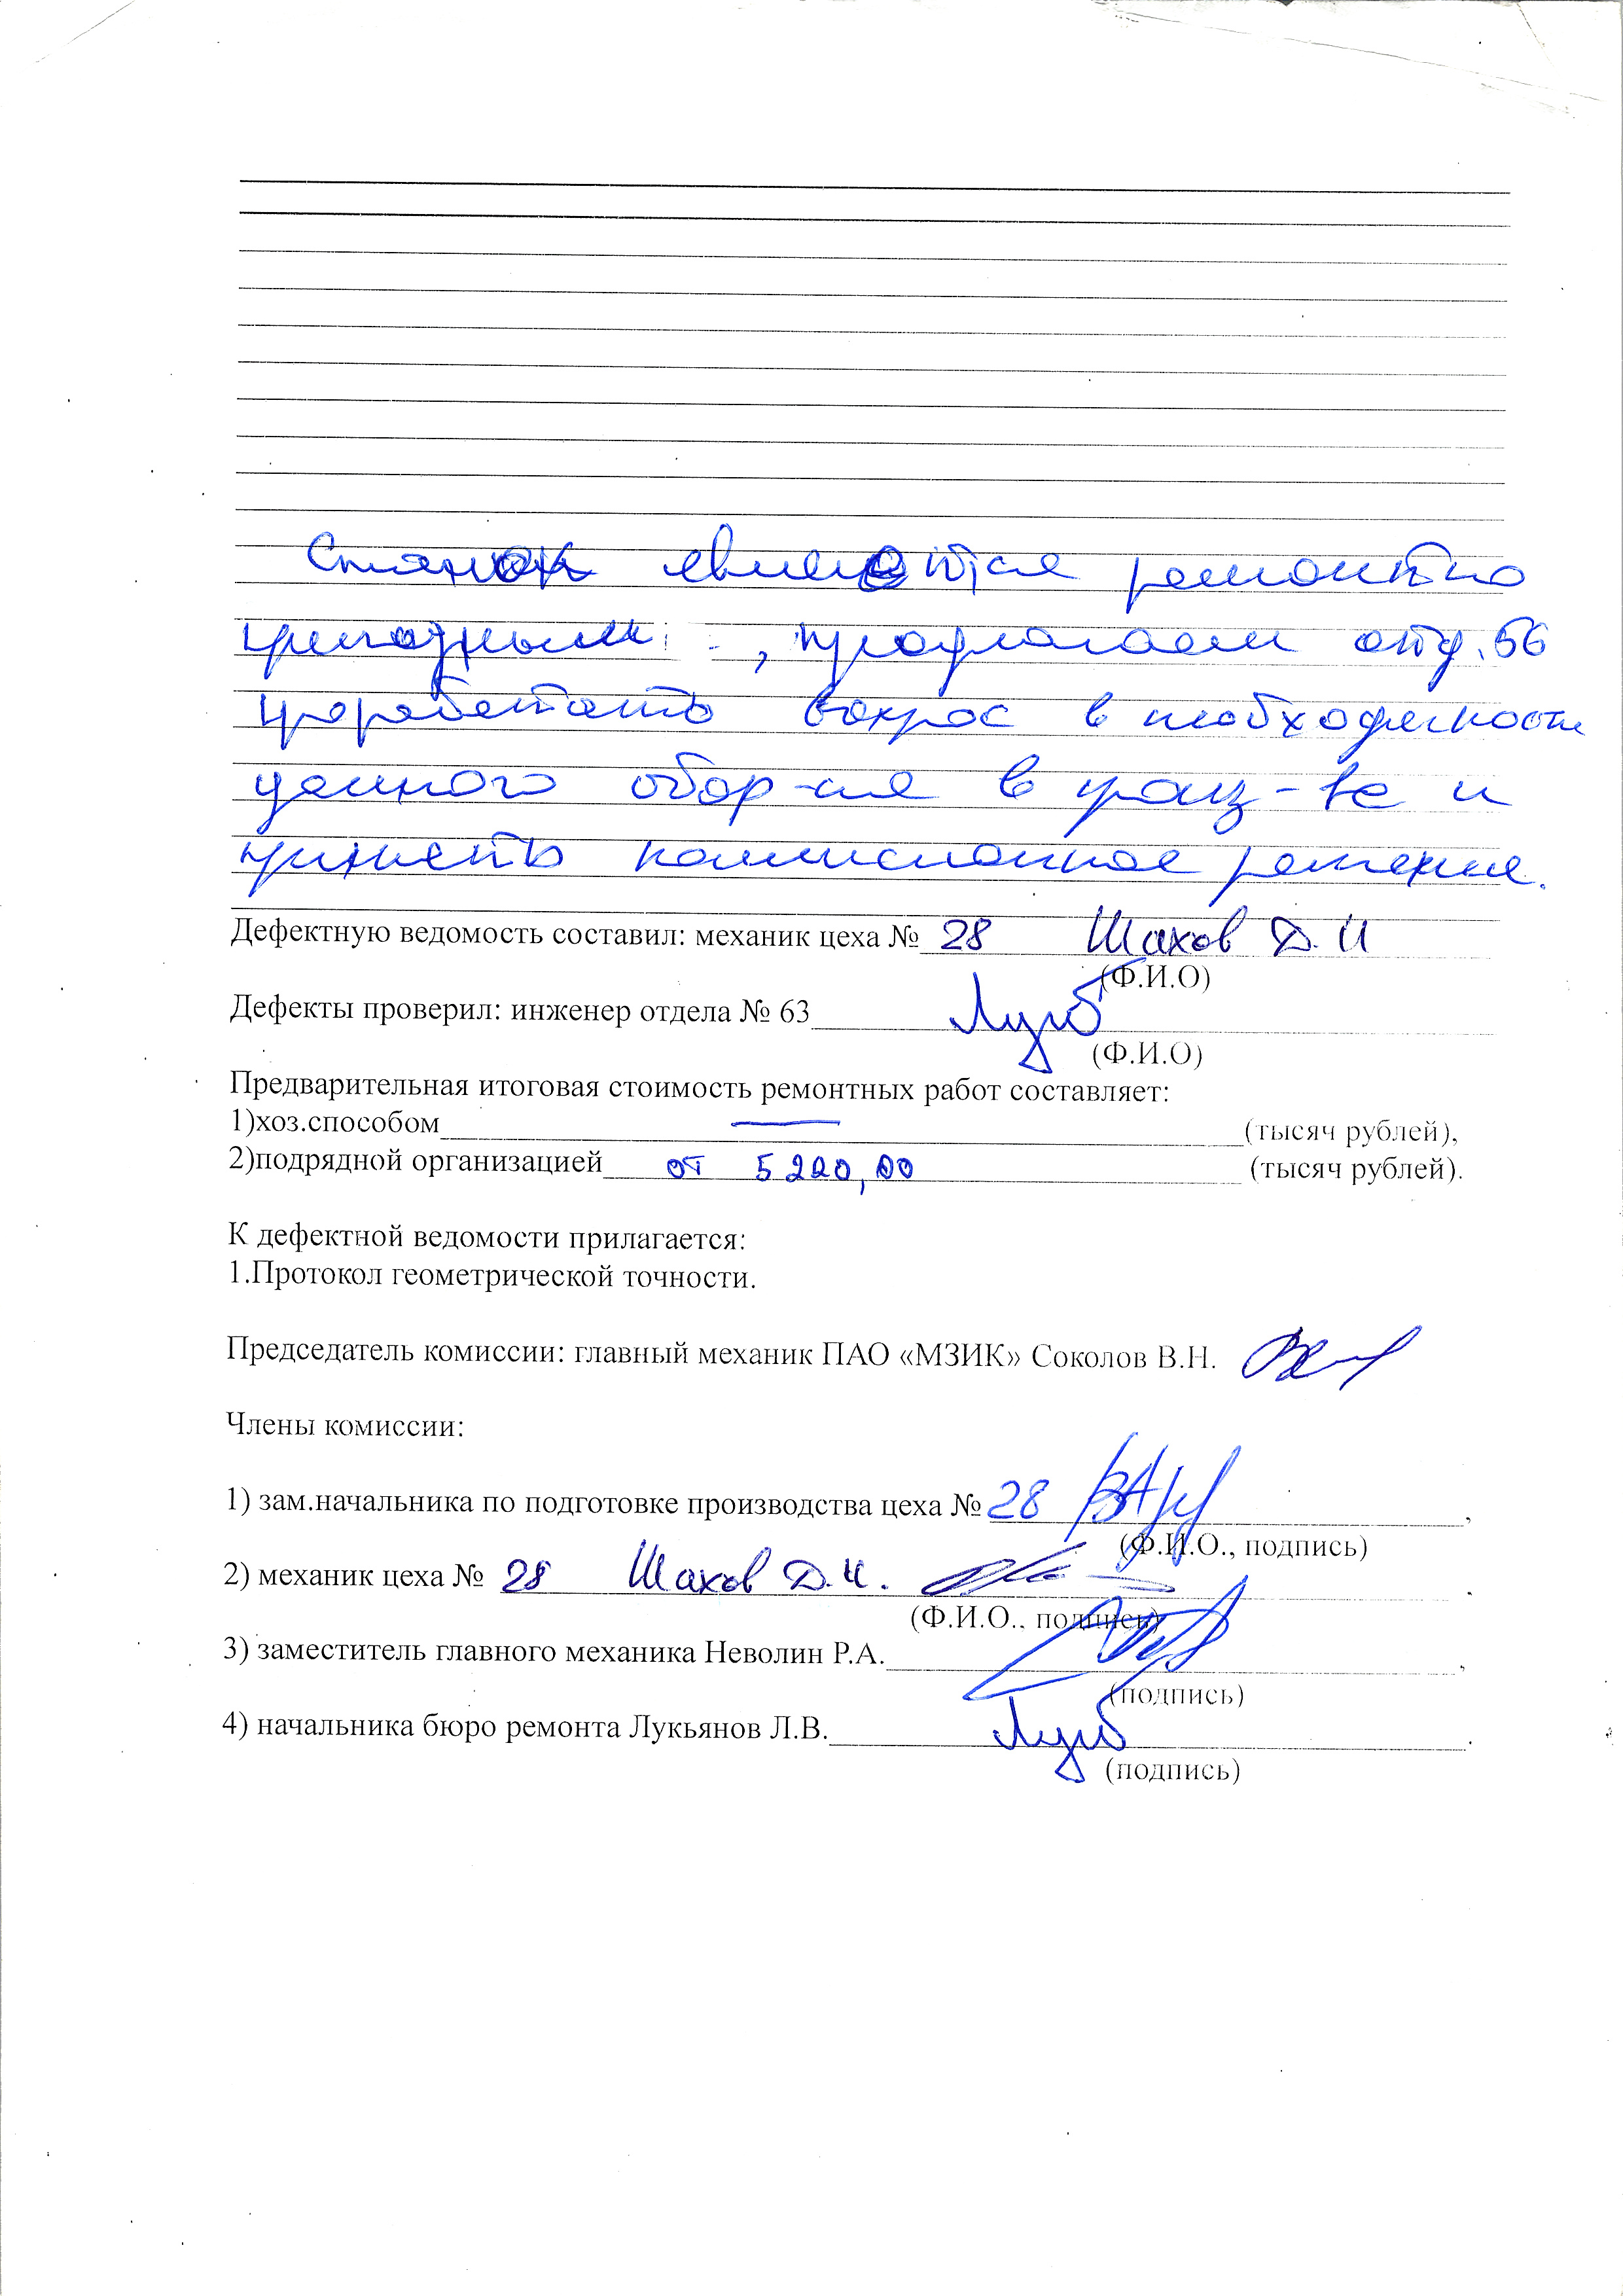 Станок является ремонтно
пригодным, предлагаем отд. 56
проработать вопрос в необходимости
данного обор-ия в произ-ве и
принять комиссионное решение.
Дефектную ведомость составил: механик цеха № 28 Шахов Д. И
(Ф.И.О)
Дефекты проверил: инженер отдела № 63
(Ф.И.О)
Предварительная итоговая стоимость ремонтных работ составляет:
1)хоз.способом — (тысяч рублей),
2)подрядной организацией от 5 220,00 (тысяч рублей).
К дефектной ведомости прилагается:
1.Протокол геометрической точности.
Председатель комиссии: главный механик ПАО «МЗИК» Соколов В.Н.
Члены комиссии:
1) зам.начальника по подготовке производства цеха № 28,
(Ф.И.О., подпись)
2) механик цеха № 28 Шахов Д.И.
(Ф.И.О., подпись)
3) заместитель главного механика Неволин Р.А.,
(подпись)
4) начальника бюро ремонта Лукьянов Л.В.
(подпись)